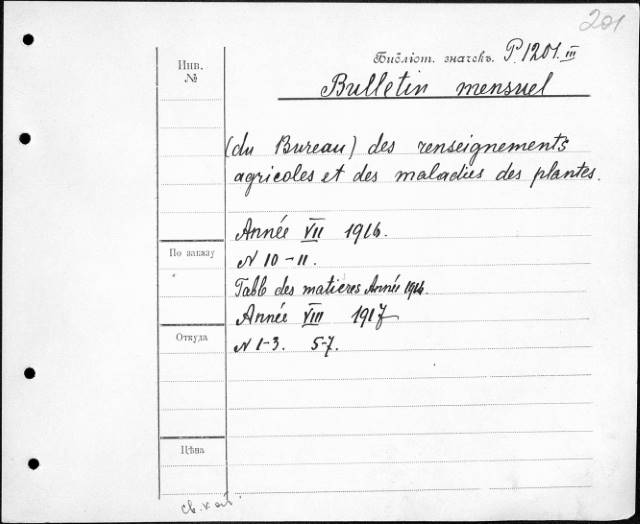 201
Инв.
№
Библіот. значекъ. P.1201.III
Bulletin mensuel
(du Bureau) des renseignements
agricoles et des maladies des plantes.
Année VII 1916.
N 10-11.
По заказу
Tabl des matieres Année 1916.
Année VIII 1917
Откуда
N 1-3. 5-7.
Цѣна
св. кат.